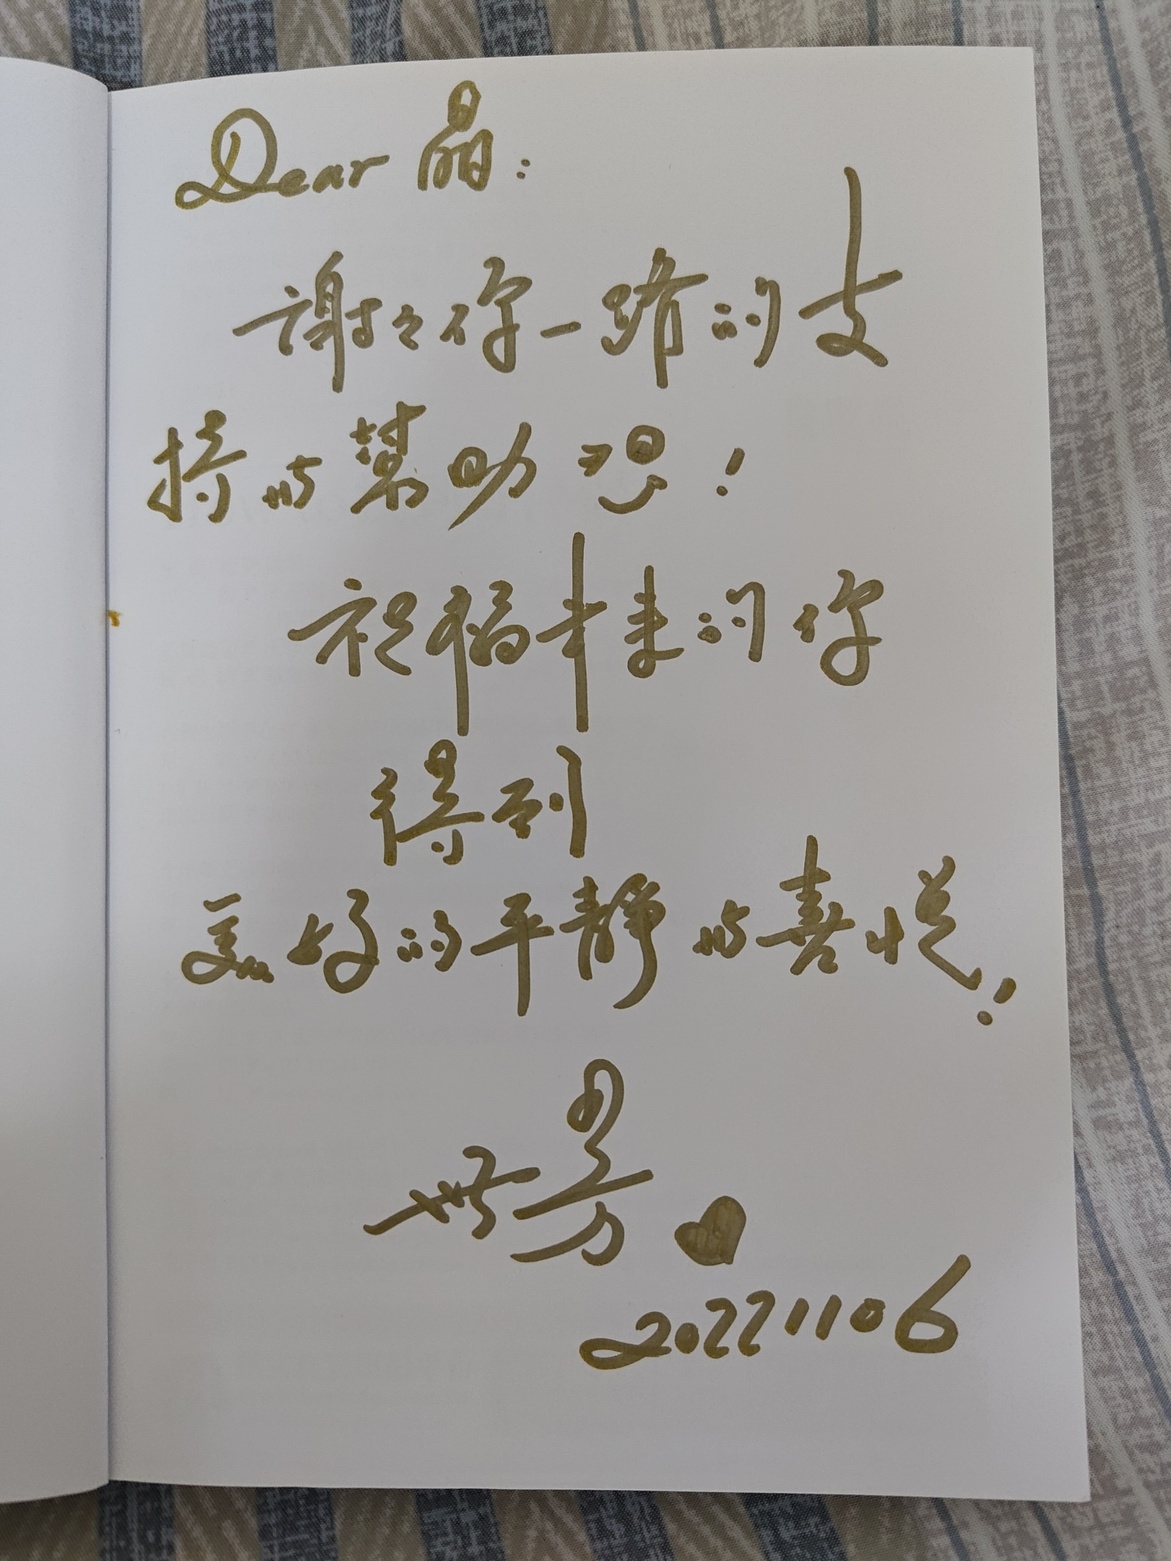 Dear 晶:
謝々你一路的支
持與幫助!
祝福未來的你
得到
美好的平靜與喜悅!
20221106